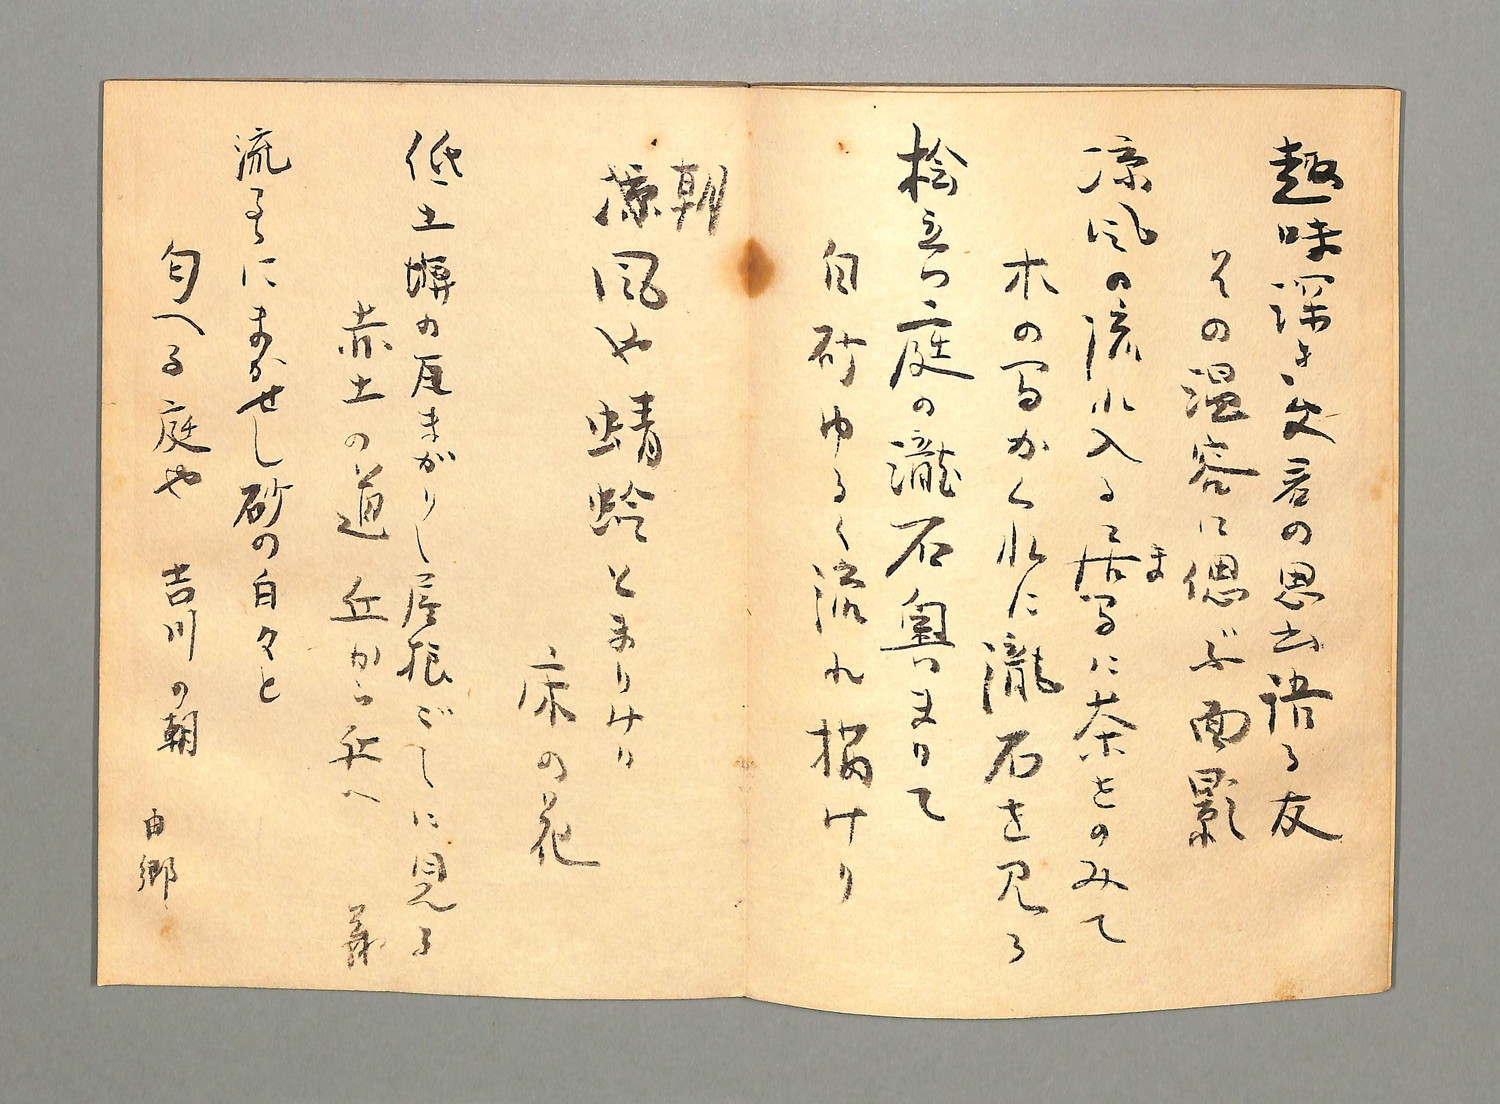 趣味深き父君の思出語る友
その温容に偲ぶ面影
涼風の流れ入る居間に茶をのみて
ま
木の間かくれに瀧石を見る
桧立つ庭の瀧石奥つまりて
白砂ゆるく流れ描けり
朝
涼風や蜻蛉とまりけり
床の花
低土塀の瓦まがりし屋根ごしに見る
赤土の道丘から丘へ
流るるにまかせし砂の白々と
匂へる庭や 吉川の朝 由郷